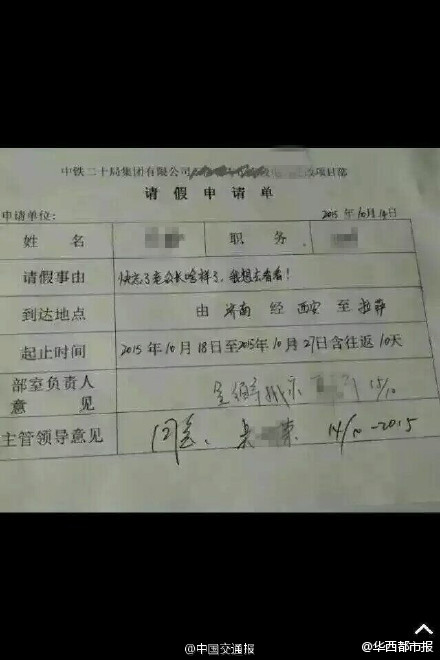 中铁二十局集团有限公司 改项目部
请假申请单
申请单位： 2015年10月14日
姓名 职务
请假事由 快忘了老公长啥样了，我想去看看！
到达地点 由济南经西安至拉萨
起止时间 2015年10月18日至2015年10月27日含往返10天
部室负责人
意见 15/10
主管领导意见 同意. 吴 荣 14/10-2015
@中国交通报
@华西都市报